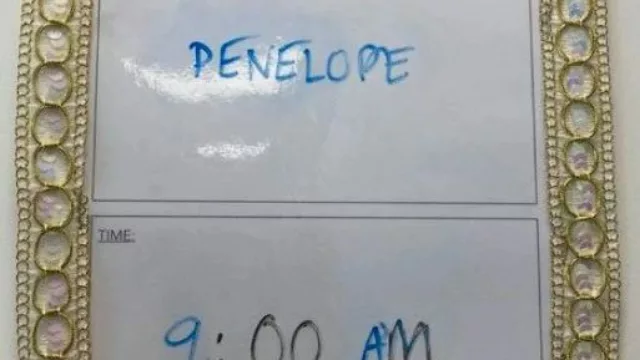 PENELOPE
TIME:
9:00 AM